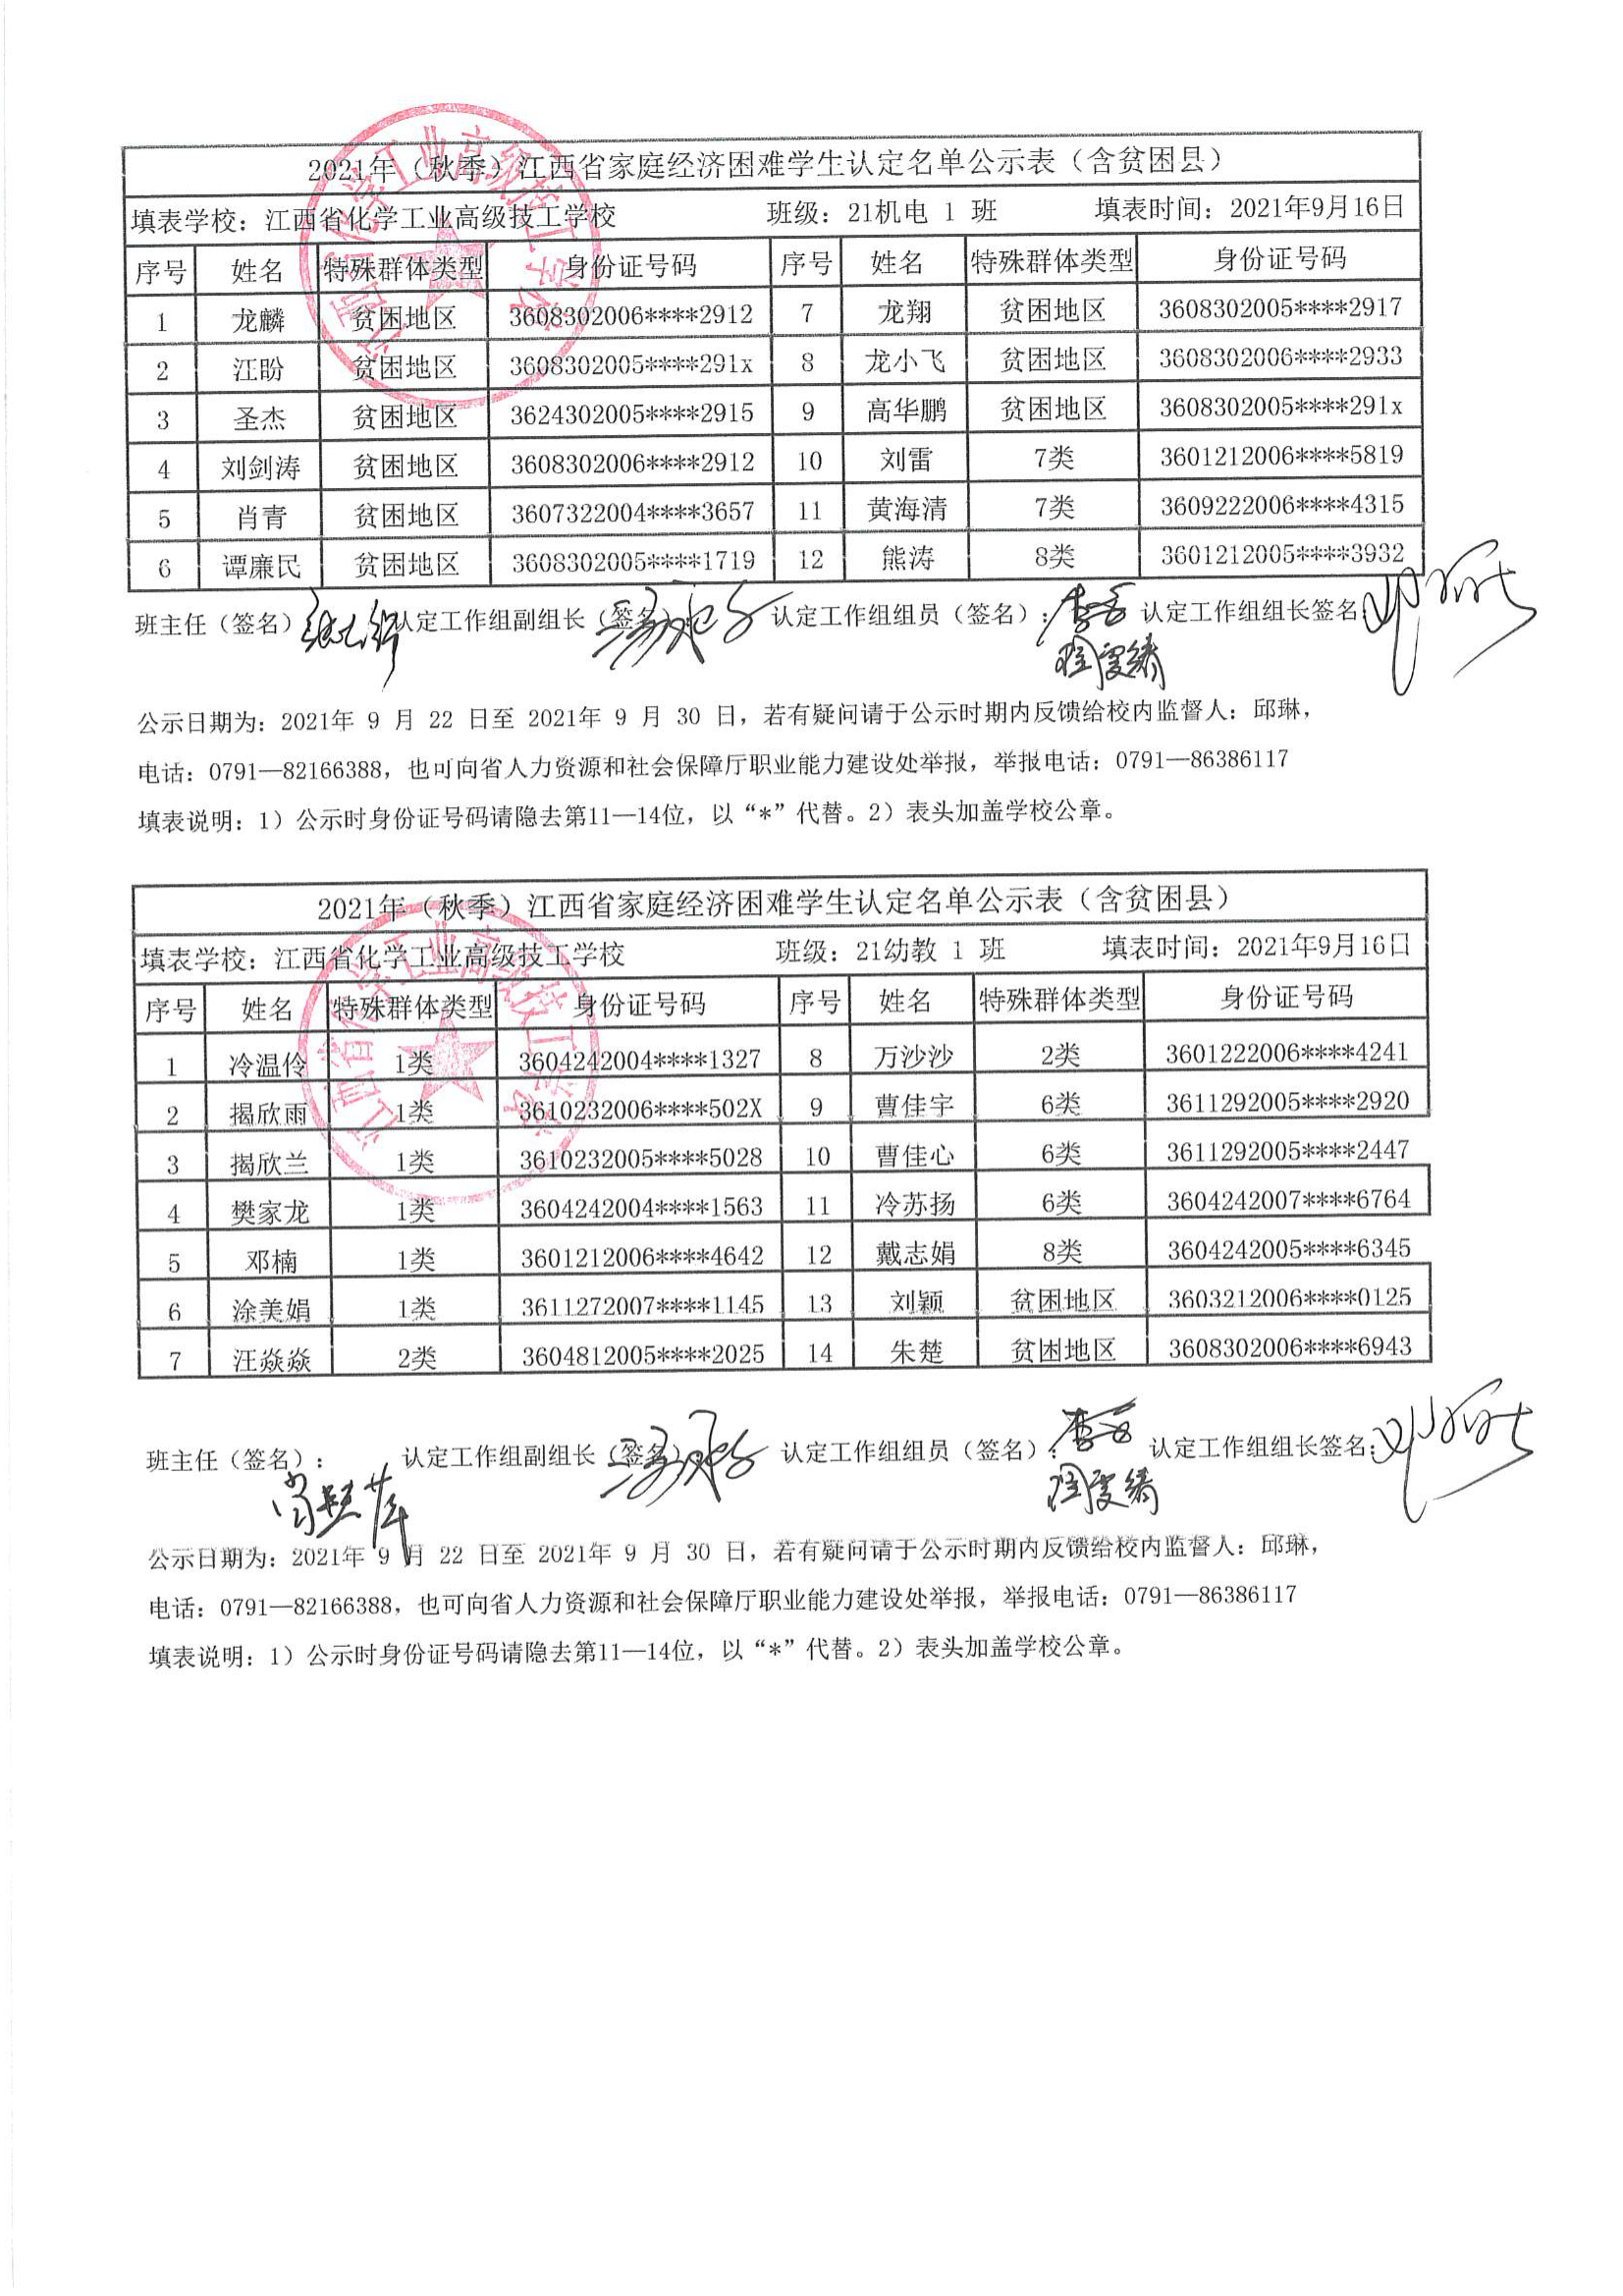 2021年（秋季）江西省家庭经济困难学生认定名单公示表（含贫困县）
填表学校：江西省化学工业高级技工学校 班级：21机电 1 班 填表时间：2021年9月16日
序号 姓名 特殊群体类型 身份证号码 序号 姓名 特殊群体类型 身份证号码
1 龙麟 贫困地区 3608302006****2912 7 龙翔 贫困地区 3608302005****2917
2 江盼 贫困地区 3608302005****291x 8 龙小飞 贫困地区 3608302006****2933
3 圣杰 贫困地区 3624302005****2915 9 高华鹏 贫困地区 3608302005****291x
4 刘剑涛 贫困地区 3608302006****2912 10 刘雷 7类 3601212006****5819
5 肖青 贫困地区 3607322004****3657 11 黄海清 7类 3609222006****4315
6 谭廉民 贫困地区 3608302005****1719 12 熊涛 8类 3601212005****3932
班主任（签名） 认定工作组副组长（签名） 认定工作组组员（签名）： 认定工作组组长签名
公示日期为：2021年 9 月 22 日至 2021年 9 月 30 日，若有疑问请于公示时期内反馈给校内监督人：邱琳，
电话：0791—82166388，也可向省人力资源和社会保障厅职业能力建设处举报，举报电话：0791—86386117
填表说明：1）公示时身份证号码请隐去第11—14位，以“*”代替。2）表头加盖学校公章。
2021年（秋季）江西省家庭经济困难学生认定名单公示表（含贫困县）
填表学校：江西省化学工业高级技工学校 班级：21幼教 1 班 填表时间：2021年9月16日
序号 姓名 特殊群体类型 身份证号码 序号 姓名 特殊群体类型 身份证号码
1 冷温伶 1类 3604242004****1327 8 万沙沙 2类 3601222006****4241
2 揭欣雨 1类 3610232006****502X 9 曹佳宇 6类 3611292005****2920
3 揭欣兰 1类 3610232005****5028 10 曹佳心 6类 3611292005****2447
4 樊家龙 1类 3604242004****1563 11 冷苏扬 6类 3604242007****6764
5 邓楠 1类 3601212006****4642 12 戴志娟 8类 3604242005****6345
6 涂美娟 1类 3611272007****1145 13 刘颖 贫困地区 3603212006****0125
7 汪焱焱 2类 3604812005****2025 14 朱楚 贫困地区 3608302006****6943
班主任（签名）： 认定工作组副组长（签名） 认定工作组组员（签名）： 认定工作组组长签名：
公示日期为：2021年 9 月 22 日至 2021年 9 月 30 日，若有疑问请于公示时期内反馈给校内监督人：邱琳，
电话：0791—82166388，也可向省人力资源和社会保障厅职业能力建设处举报，举报电话：0791—86386117
填表说明：1）公示时身份证号码请隐去第11—14位，以“*”代替。2）表头加盖学校公章。